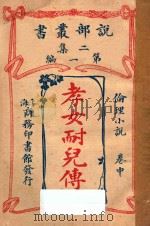 說部叢書
二集
第一編
倫理小說 卷中
孝女耐兒傳
上海商務印書館發行